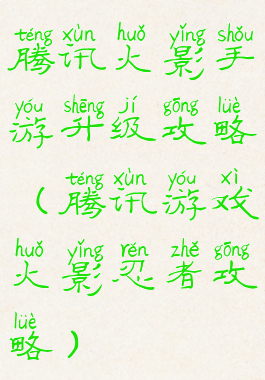 téng xùn huǒ yǐng shǒu
腾讯火影手
yóu shēng jí gōng lüè
游升级攻略
téng xùn yóu xì
（腾讯游戏
huǒ yǐng rěn zhě gōng
火影忍者攻
lüè
略）